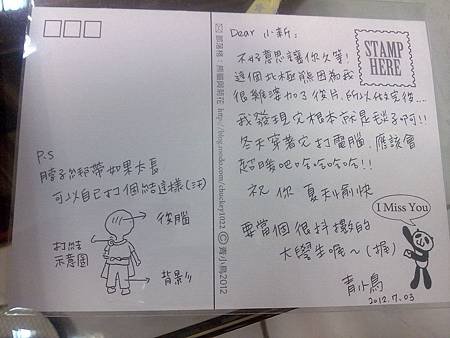 Dear 小新:
不好意思讓你久等!
這個北極熊因為我
很雞婆加了後片,所以做完後...
我發現它根本就是毯子啊!!
冬天穿著它打電腦,應該會
超暖吧哈哈哈哈!!
祝 你 夏天愉快
要當個很抖擻的
大學生喔~(握)
青小鳥
2012.7.03
STAMP
HERE
I Miss You
http://blog.roodo.com/chuckey1022 ©青小鳥2012
P.S
脖子的綁帶如果太長
可以自己打個結這樣(汗)
後腦
打結
示意圖
背影